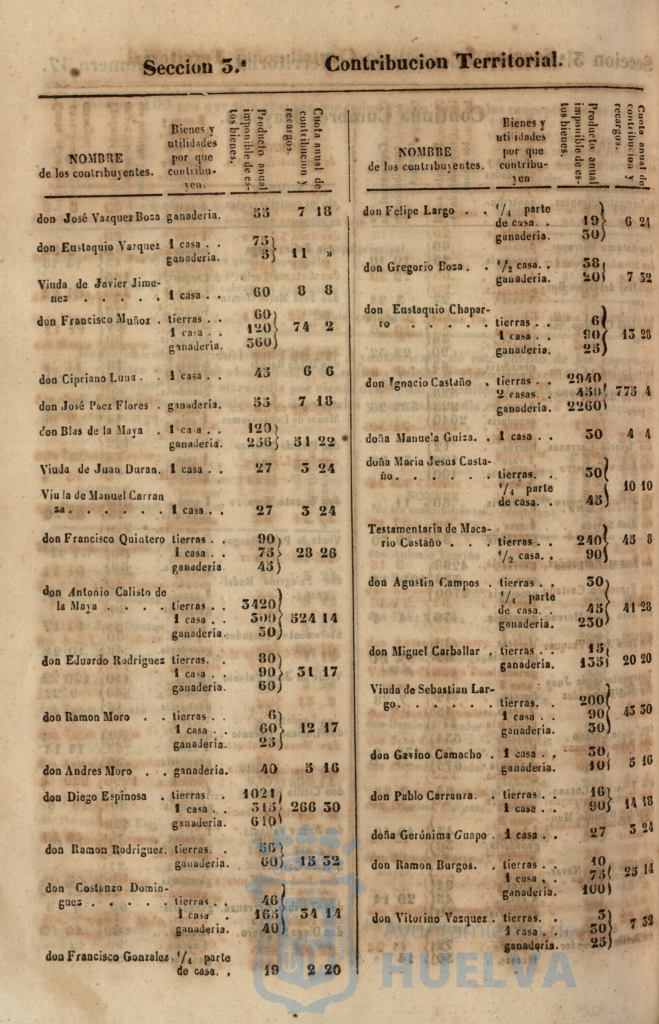 Seccion 3.ª Contribucion Territorial.
NOMBRE
de los contribuyentes.
Bienes y
utilidades
por que
contribu-
yen.
Producto anual
imponible de es-
tos bienes.
Cuota anual de
contribucion y
recargos.
don José Vazquez Boza ganaderia. 55 7 18
don Eustaquio Vazquez 1 casa . . 75
ganaderia. 5 11 »
Viuda de Javier Jime-
nez . . . . . 1 casa . . 60 8 8
don Francisco Muñoz . tierras . . 60
1 casa . . 120 74 2
ganaderia. 360
don Cipriano Luna . . 1 casa . . 45 6 6
don José Paez Flores . ganaderia. 55 7 18
don Blas de la Maya . 1 casa . . 120
ganaderia. 256 51 22
Viuda de Juan Duran. 1 casa . . 27 3 24
Viuda de Manuel Carran
za. . . . . . 1 casa . . 27 3 24
don Francisco Quintero tierras . . 90
1 casa . . 75 28 26
ganaderia 45
don Antonio Calisto de
la Maya . . . . tierras . . 3420
1 casa . . 300 524 14
ganaderia. 50
don Eduardo Rodriguez tierras. . 80
1 casa . . 90 31 17
ganaderia. 60
don Ramon Moro . . tierras . . 6
1 casa . . 60 12 17
ganaderia. 25
don Andres Moro . . ganaderia. 40 5 16
don Diego Espinosa . tierras . . 1021
1 casa . . 315 266 30
ganaderia. 610
don Ramon Rodriguez. tierras. . 56
ganaderia. 60 15 32
don Costanzo Domin-
guez . . . . . tierras . . 46
1 casa . . 165 34 14
ganaderia. 40
don Francisco Gonzalez 1/4 parte
de casa. . 19 2 20
NOMBRE
de los contribuyentes.
Bienes y
utilidades
por que
contribu-
yen
Producto anual
imponible de es-
tos bienes.
Cuota anual de
contribucion y
recargos.
don Felipe Largo . . 1/4 parte
de casa. . 19 6 24
ganaderia. 30
don Gregorio Boza. . 1/2 casa. . 38
ganaderia. 20 7 32
don Eustaquio Chapar-
ro . . . . . tierras . . 6
1 casa . . 90 13 28
ganaderia. 25
don Ignacio Castaño . tierras . . 2940
2 casas. . 450 775 4
ganaderia. 2260
doña Manuela Guiza. . 1 casa . . 30 4 4
doña Maria Jesus Casta-
ño. . . . . . tierras. . 30
1/4 parte 10 10
de casa. . 45
Testamentaria de Maca-
rio Castaño . . . tierras . . 240 45 8
1/2 casa. . 90
don Agustin Campos . tierras . . 30
1/4 parte
de casa. . 45 41 28
ganaderia. 230
don Miguel Carballar . tierras . . 15
ganaderia. 135 20 20
Viuda de Sebastian Lar-
go. . . . . . tierras. . 200
1 casa . . 90 43 30
ganaderia. 30
don Gavino Camacho . 1 casa . . 30
ganaderia. 10 5 16
don Pablo Carranza. . tierras . . 16
1 casa . . 90 14 18
doña Gerónima Guapo . 1 casa . . 27 3 24
don Ramon Burgos. . tierras . . 10
1 casa . . 75 25 14
ganaderia. 100
don Vitorino Vazquez . tierras. . 3
1 casa . . 30 7 32
ganaderia. 25
Ayuntamiento de
HUELVA